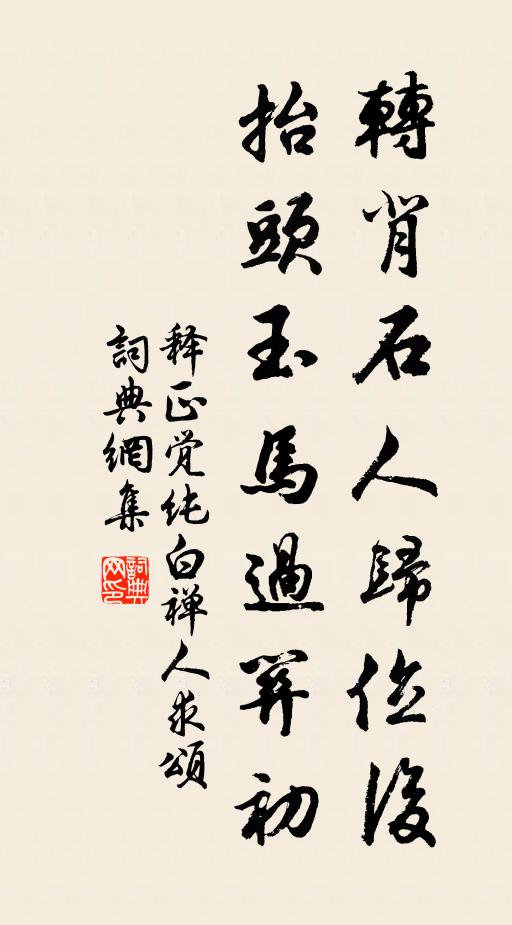 轉背石人歸位後
抬頭玉馬過關初
释正觉纯白禅人求頌
詞典網集
詞典網印